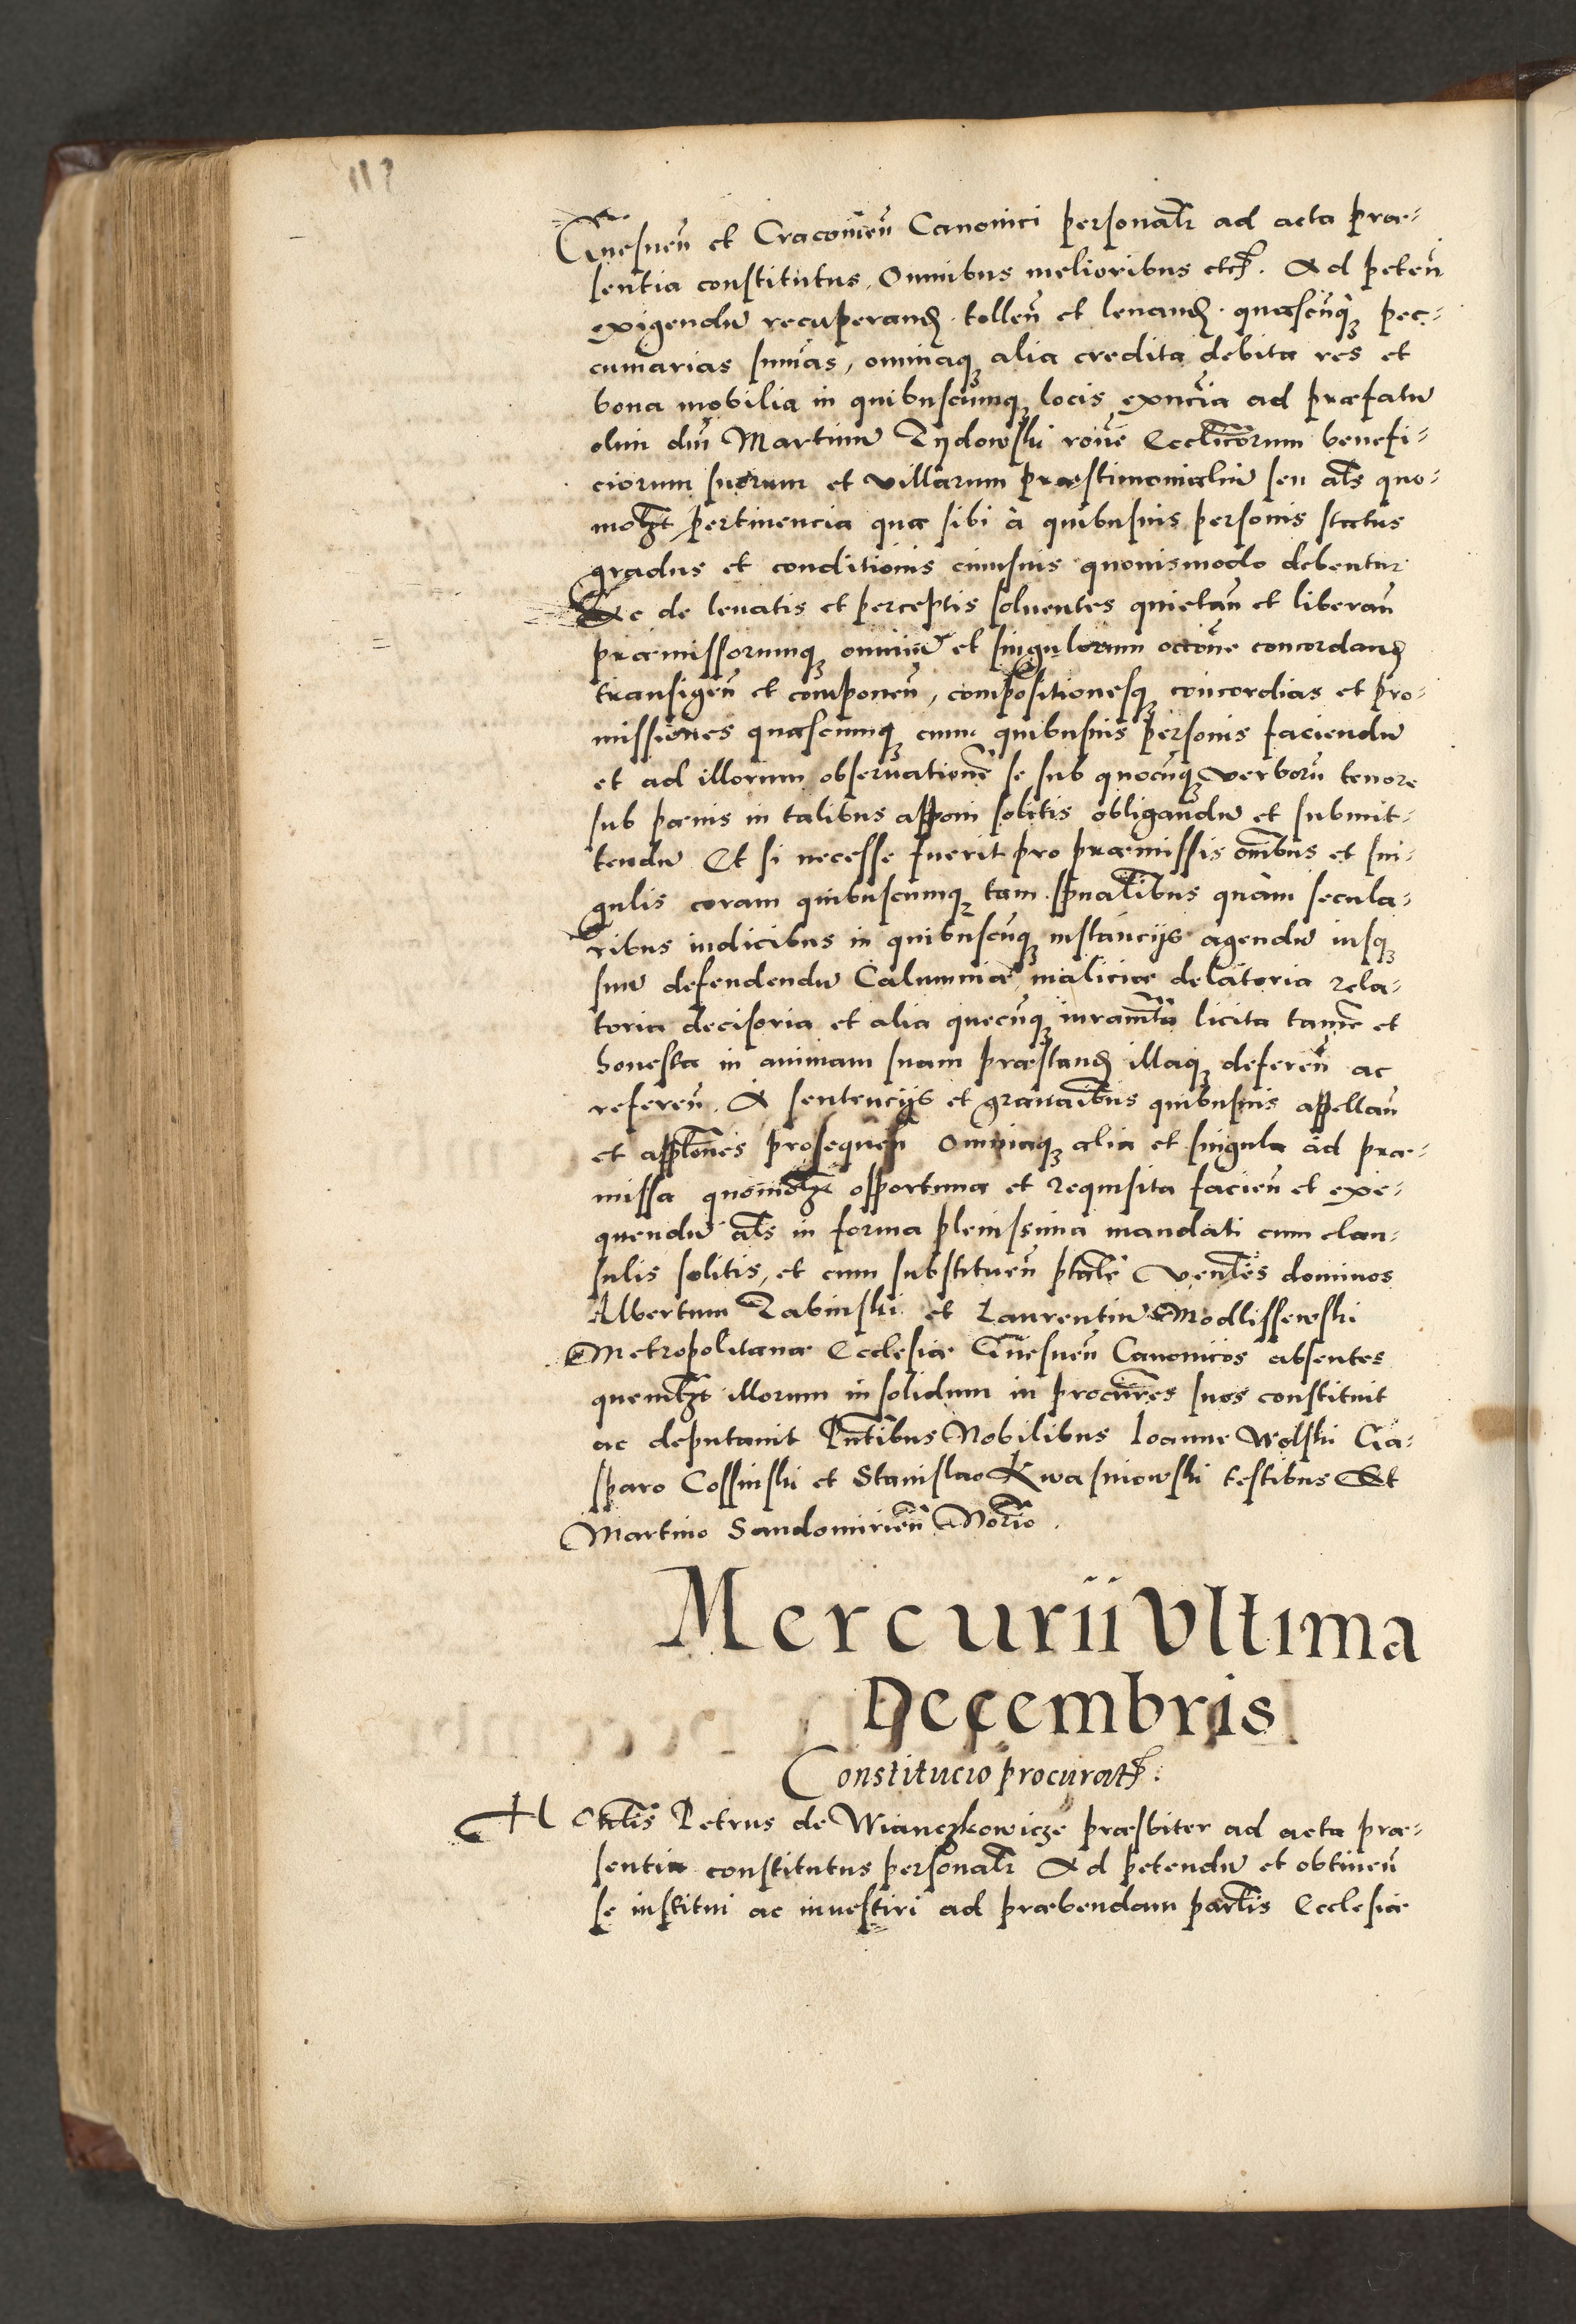 Gnesneñ et Cracovieñ Canonici personalr ad acta præ-
sentia constitutus, Omnibus melioribus etc. Ad peteñ
exigendū recuperand. tolleñ et levand. quascūq pec-
cuniarias sūmas, omniaq alia credita debita res et
bona mobilia in quibuscūmq locis exñtia ad præfatū
olim dnū Martinū Zydowski rōne Ecclīcorum benefi-
ciorum suorum et villarum præstimonialiū seu als quo-
molzt pertinencia quæ sibi à quibusvis personis status
gradus et conditionis cuiusvis quovismodo debentur
Ac de levatis et perceptis solventes quietañ et liberañ
præmissorumq omniū et singulorum occōne concordand
transigeñ et componeñ, compositionesq concordias et pro-
missiones quascumq cum quibusvis personis faciendū
et ad illorum observationē se sub quocūq verborū tenore
sub pænis in talibus apponi solitis obligandū et submit-
tendū Et si necesse fuerit pro præmissis oñibus et sin-
gulis coram quibuscumq tam spūalibus quàm secula-
ribus iudicibus in quibuscūq instancijs agendū iusq
suū defendendū Calumniæ maliciæ delatoria rela-
toria decisoria et alia quecūq iuramta licita tamē et
honesta in animam suam præstand illaq defereñ ac
refereñ. A sentencijs et gravaībus quibusvis appellañ
et applōnes prosequeñ Omniaq alia et singula ad præ-
missa quomolzt opportuna et requisita facieñ et exe-
quendū als in forma plenissima mandati cum clau-
sulis solitis, et cum substitueñ ptāte Venles dominos
Albertum Zabinski et Laurentiū Modlissewski
Metropolitanæ Ecclesiæ Gnesneñ Canonicos absentes
quemlzt illorum in solidum in procūres suos constituit
ac deputavit Pñtibus Nobilibus Ioanne Wolski Ga-
sparo Cossinski et Stanislao Kwasniowski testibus Et
Martino Sandomirieñ Norio.
Mercurii Vltima
Decembris
Constitucio procurat.
Petrus de Wianczkowicze præsbiter ad acta præ-
sentia constitutus personalr Ad petendū et obtineñ
se institui ac investiri ad præbendam partis Ecclesiæ